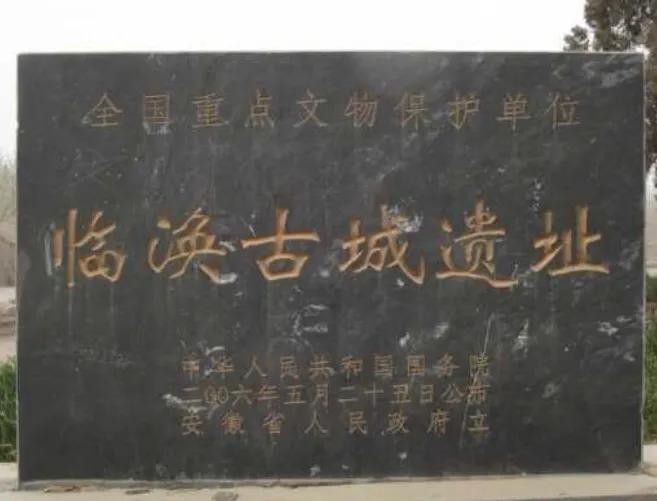 全国重点文物保护单位
临涣古城遗址
中华人民共和国国务院
二〇〇六年五月二十五日公布
安徽省人民政府立